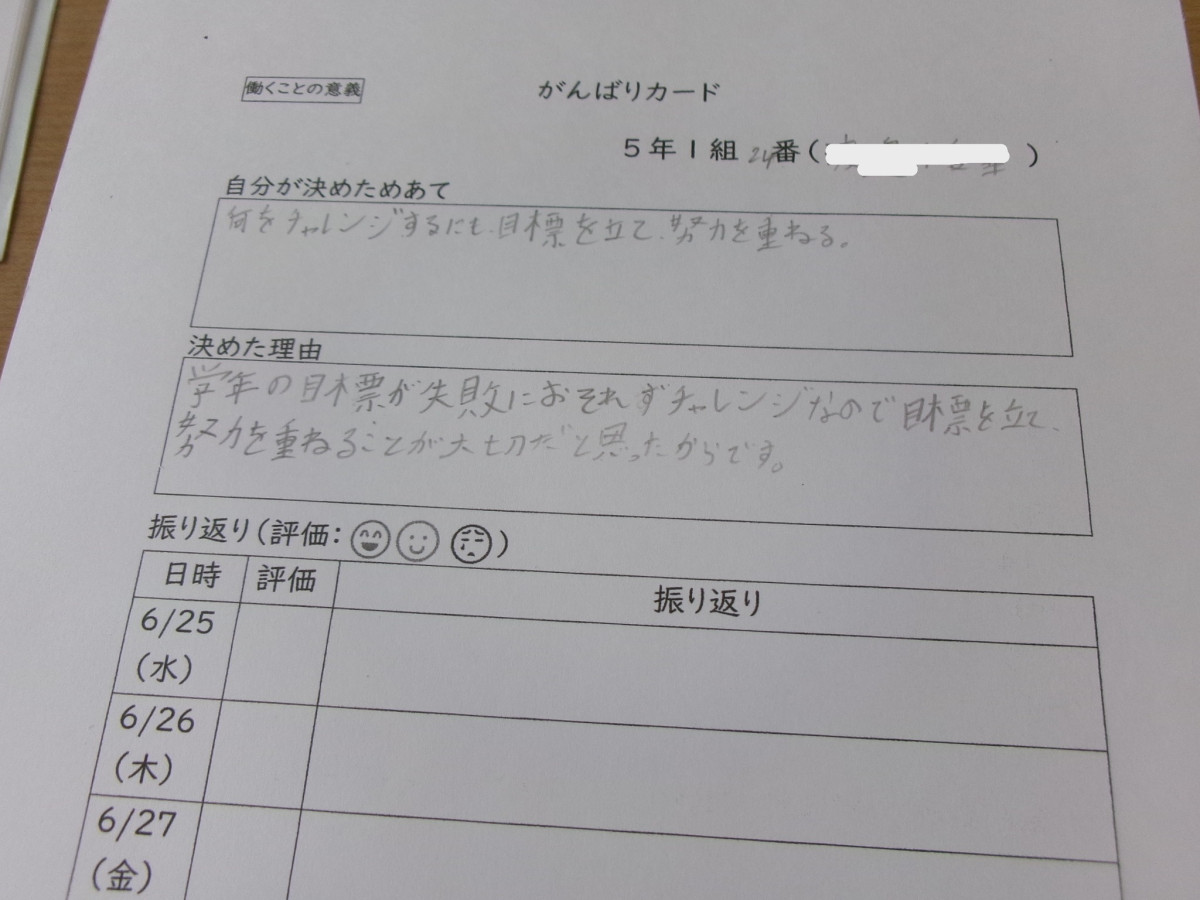 働くことの意義
がんばりカード
5年1組24番( )
自分が決めためあて
何をチャレンジするにも、目標を立て、努力を重ねる。
決めた理由
学年の目標が失敗におそれずチャレンジなので目標を立て、
努力を重ねることが大切だと思ったからです。
振り返り(評価: )
日時 評価 振り返り
6/25
(水)
6/26
(木)
6/27
(金)